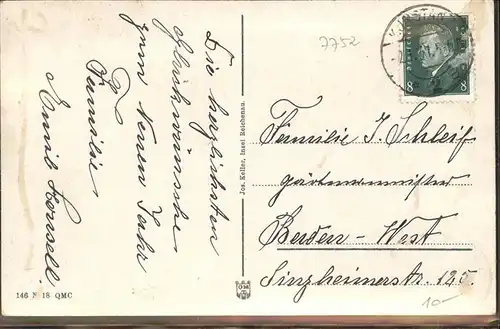 Die herzlichsten
Glückwünsche
zum neuen Jahr
Familie
Emil
Jos. Keller, Insel Reichenau.
146 N 18 QMC
7752
8 8
Familie J. Schleif
Gärtnermeister
Baden-West
Sinzheimerstr. 125.
10-